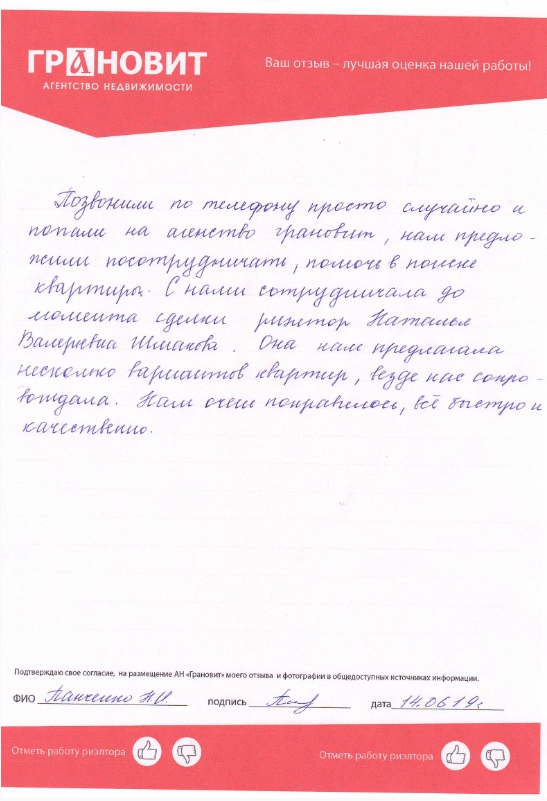 ГРАНОВИТ
АГЕНТСТВО НЕДВИЖИМОСТИ
Ваш отзыв – лучшая оценка нашей работы!
Позвонили по телефону просто случайно и
попали на агенство грановит, нам предло-
жили посотрудничать, помочь в поиске
квартиры. С нами сотрудничала до
момента сделки риэлтор Наталья
Валерьевна Шмакова. Она нам предлагала
несколько вариантов квартир, везде нас сопро-
вождала. Нам очень понравилось, всё быстро и
качественно.
Подтверждаю свое согласие, на размещение АН «Грановит» моего отзыва и фотографии в общедоступных источниках информации.
ФИО Панченко Н.И. подпись дата 14.06.19г.
Отметь работу риэлтора
Отметь работу риэлтора